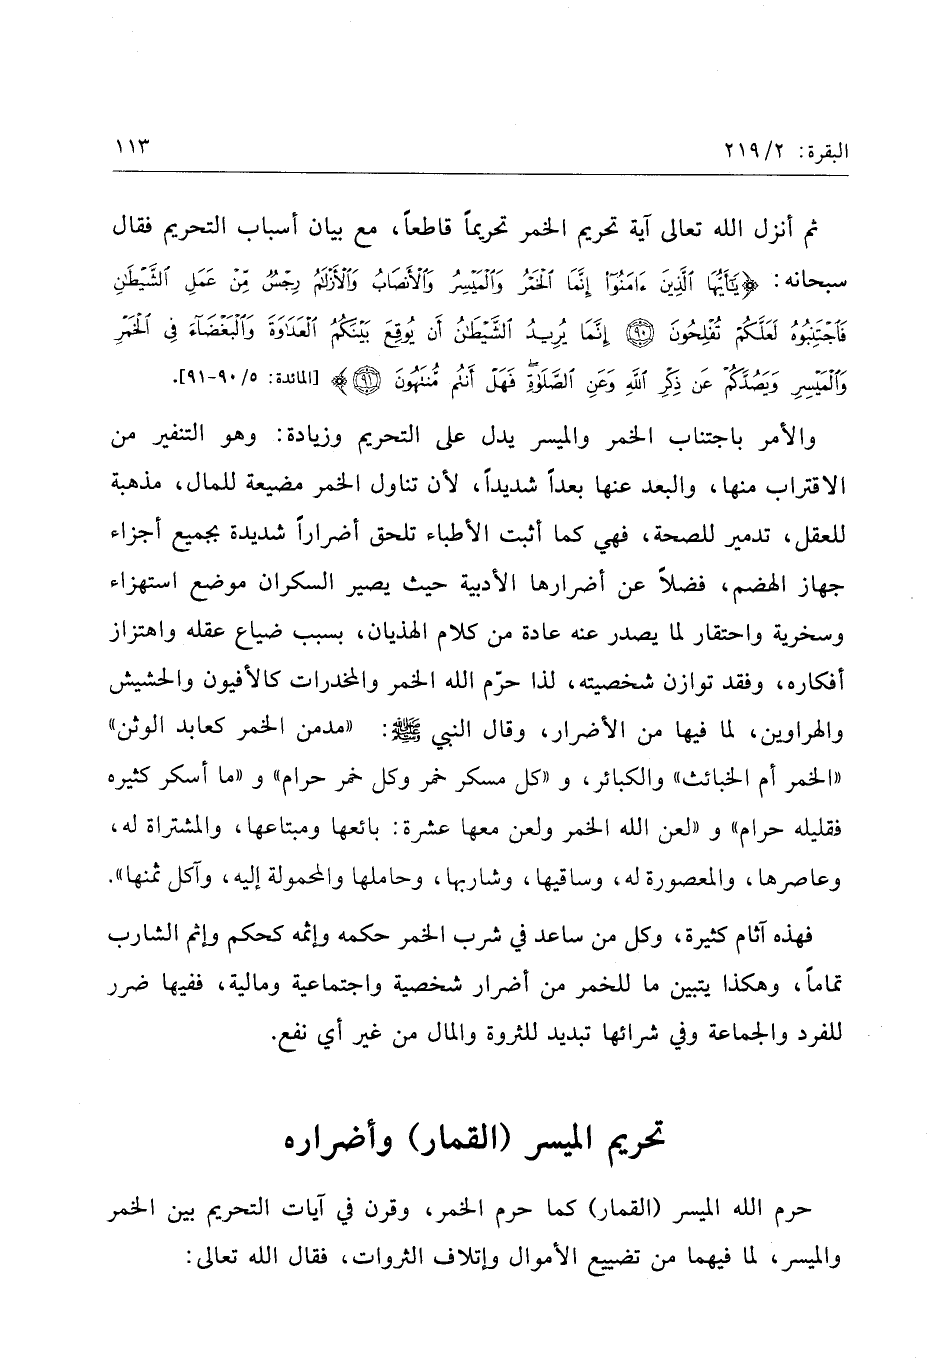 البقرة: ٢/ ٢١٩
١١٣
ثم أنزل الله تعالى آية تحريم الخمر تحريماً قاطعاً، مع بيان أسباب التحريم فقال
سبحانه: ﴿يَٰٓأَيُّهَا ٱلَّذِينَ ءَامَنُوٓا۟ إِنَّمَا ٱلْخَمْرُ وَٱلْمَيْسِرُ وَٱلْأَنصَابُ وَٱلْأَزْلَٰمُ رِجْسٌ مِّنْ عَمَلِ ٱلشَّيْطَٰنِ
فَٱجْتَنِبُوهُ لَعَلَّكُمْ تُفْلِحُونَ ﴿٩٠﴾ إِنَّمَا يُرِيدُ ٱلشَّيْطَٰنُ أَن يُوقِعَ بَيْنَكُمُ ٱلْعَدَٰوَةَ وَٱلْبَغْضَآءَ فِى ٱلْخَمْرِ
وَٱلْمَيْسِرِ وَيَصُدَّكُمْ عَن ذِكْرِ ٱللَّهِ وَعَنِ ٱلصَّلَوٰةِۖ فَهَلْ أَنتُم مُّنتَهُونَ ﴿٩١﴾﴾ [المائدة: ٥/ ٩٠-٩١].
والأمر باجتناب الخمر والميسر يدل على التحريم وزيادة: وهو التنفير من
الاقتراب منها، والبعد عنها بعداً شديداً، لأن تناول الخمر مضيعة للمال، مذهبة
للعقل، تدمير للصحة، فهي كما أثبت الأطباء تلحق أضراراً شديدة بجميع أجزاء
جهاز الهضم، فضلاً عن أضرارها الأدبية حيث يصير السكران موضع استهزاء
وسخرية واحتقار لما يصدر عنه عادة من كلام الهذيان، بسبب ضياع عقله واهتزاز
أفكاره، وفقد توازن شخصيته، لذا حرّم الله الخمر والمخدرات كالأفيون والحشيش
والهراوين، لما فيها من الأضرار، وقال النبي ﷺ: «مدمن الخمر كعابد الوثن»
«الخمر أم الخبائث» والكبائر، و «كل مسكر خمر وكل خمر حرام» و «ما أسكر كثيره
فقليله حرام» و «لعن الله الخمر ولعن معها عشرة: بائعها ومبتاعها، والمشتراة له،
وعاصرها، والمعصورة له، وساقيها، وشاربها، وحاملها والمحمولة إليه، وآكل ثمنها».
فهذه آثام كثيرة، وكل من ساعد في شرب الخمر حكمه وإثمه كحكم وإثم الشارب
تماماً، وهكذا يتبين ما للخمر من أضرار شخصية واجتماعية ومالية، ففيها ضرر
للفرد والجماعة وفي شرائها تبديد للثروة والمال من غير أي نفع.
تحريم الميسر (القمار) وأضراره
حرم الله الميسر (القمار) كما حرم الخمر، وقرن في آيات التحريم بين الخمر
والميسر، لما فيهما من تضييع الأموال وإتلاف الثروات، فقال الله تعالى: